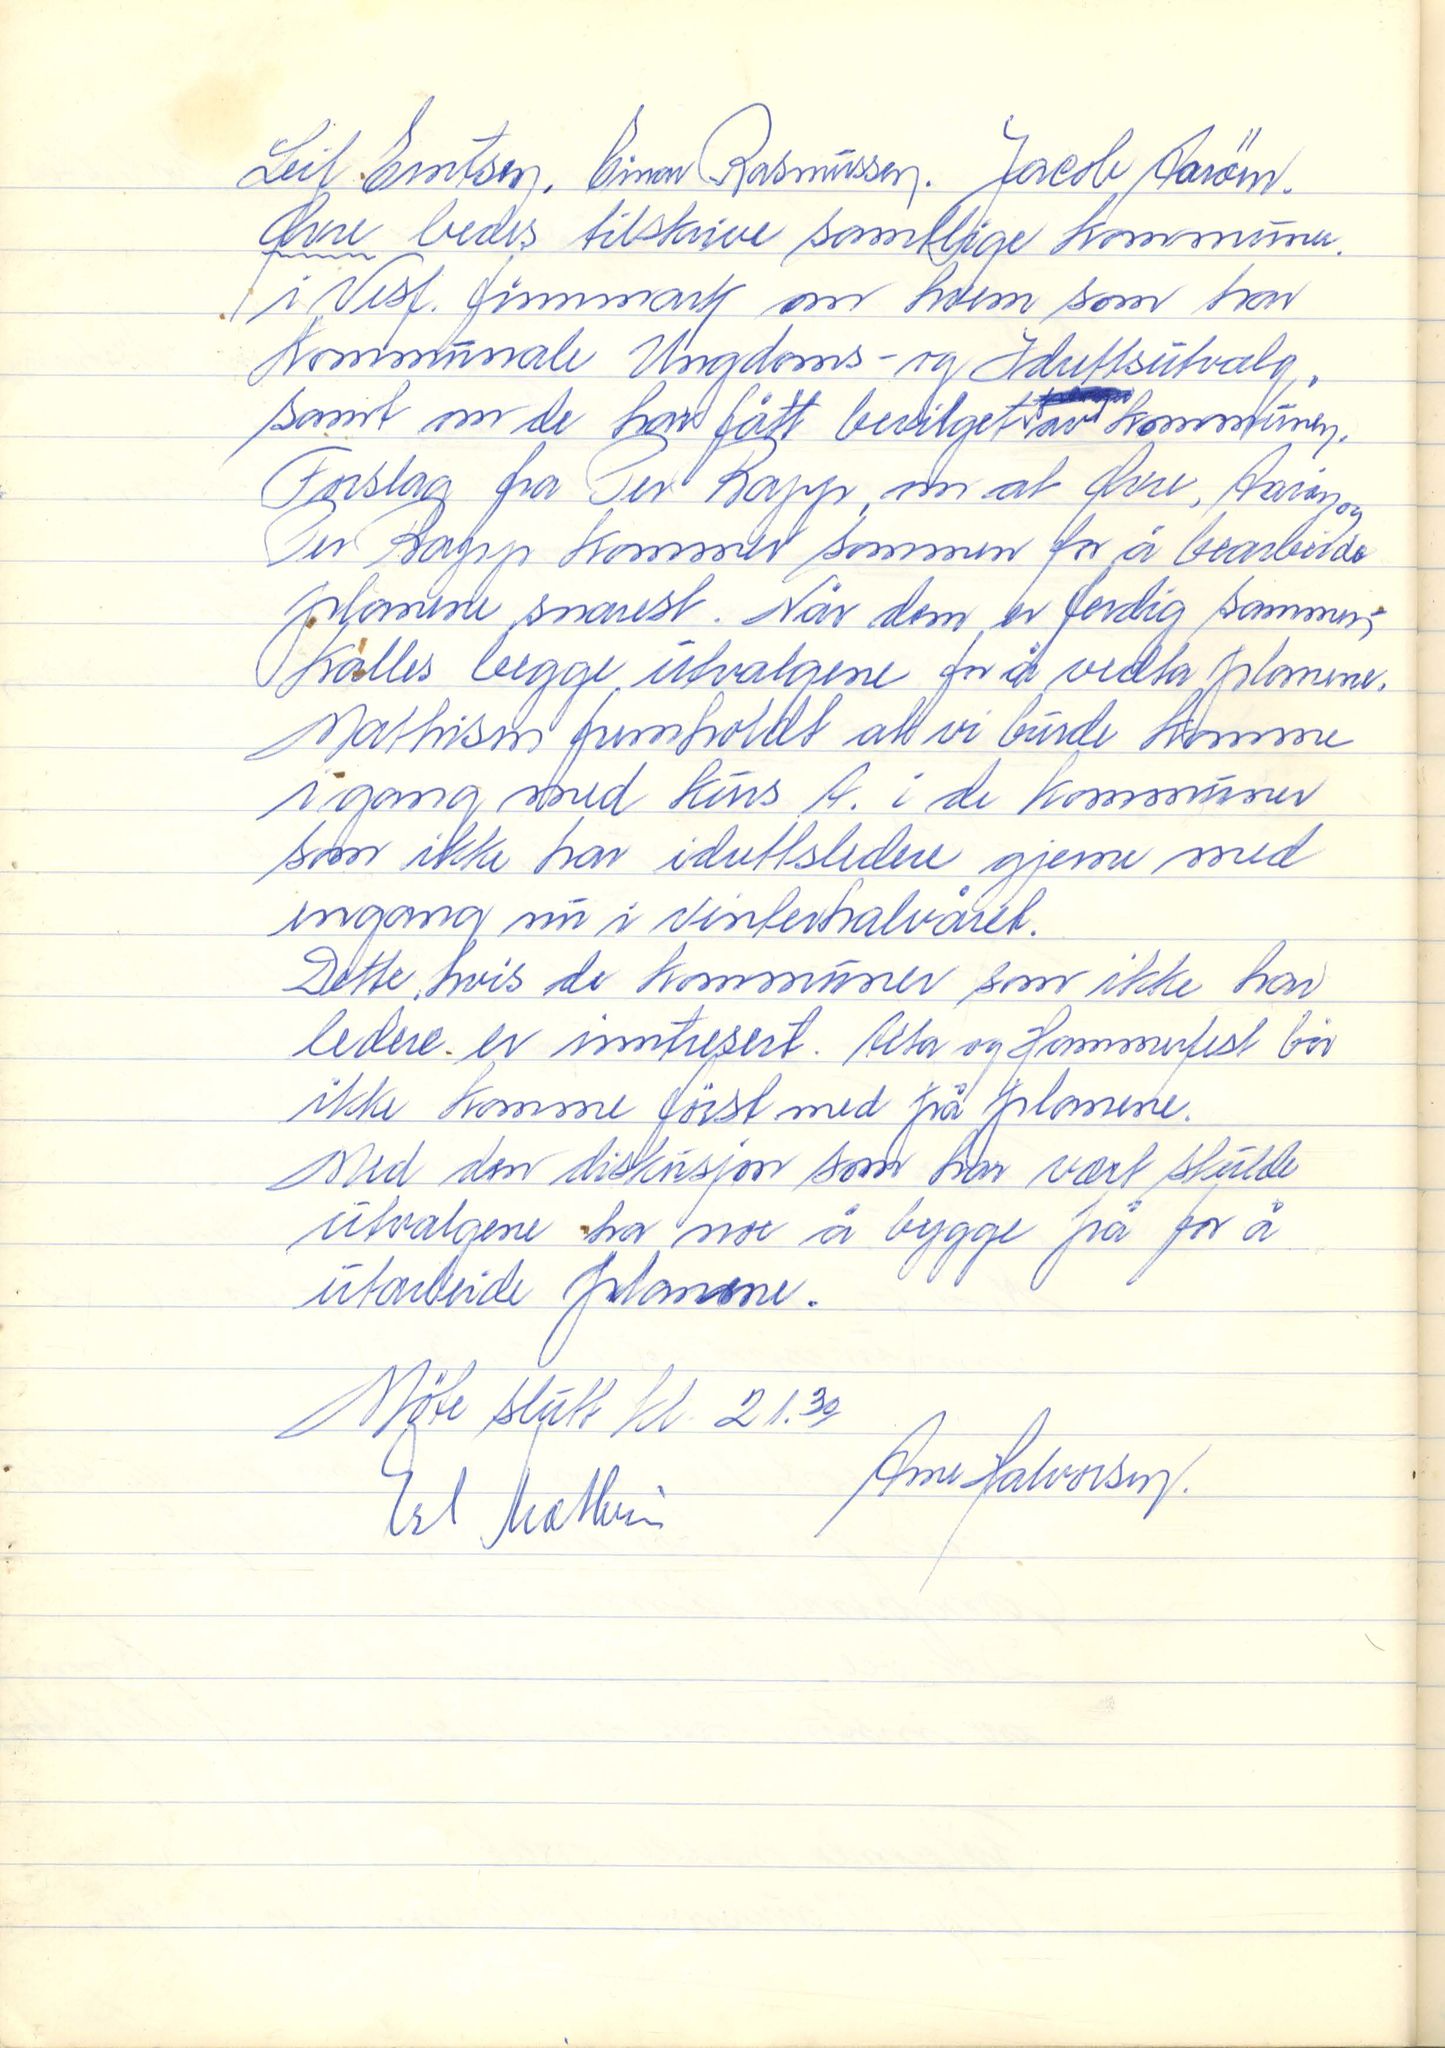 Leif Erntsen. Einar Rasmussen. Jacob Aaröen.
Øvre bedes tilskrive samtlige kommuner.
i Vest. finnmark om hvem som har
Kommunale Ungdoms- og Idrettsutvalg,
samt om de har fått bevilget av kommunen.
Forslag fra Per Rapp, om at Øvre, Aaröen og
Per Rapp kommer sammen for å bearbeide
planene snarest. Når dem er ferdig sammen-
kalles begge utvalgene for å vedta planene.
Mathisen fremholdt at vi burde komme
igang med kurs A. i de kommuner
som ikke har idrettsledere gjerne med
engang nu i vinterhalvåret.
Dette, hvis de kommuner som ikke har
ledere er inntresert. Alta og Hammerfest bör
ikke komme först med på planene.
Med den diskusjon som har vært skulde
utvalgene ha noe å bygge på for å
utarbeide planene.
Möte slutt kl. 21.30
Arne Halvorsen.